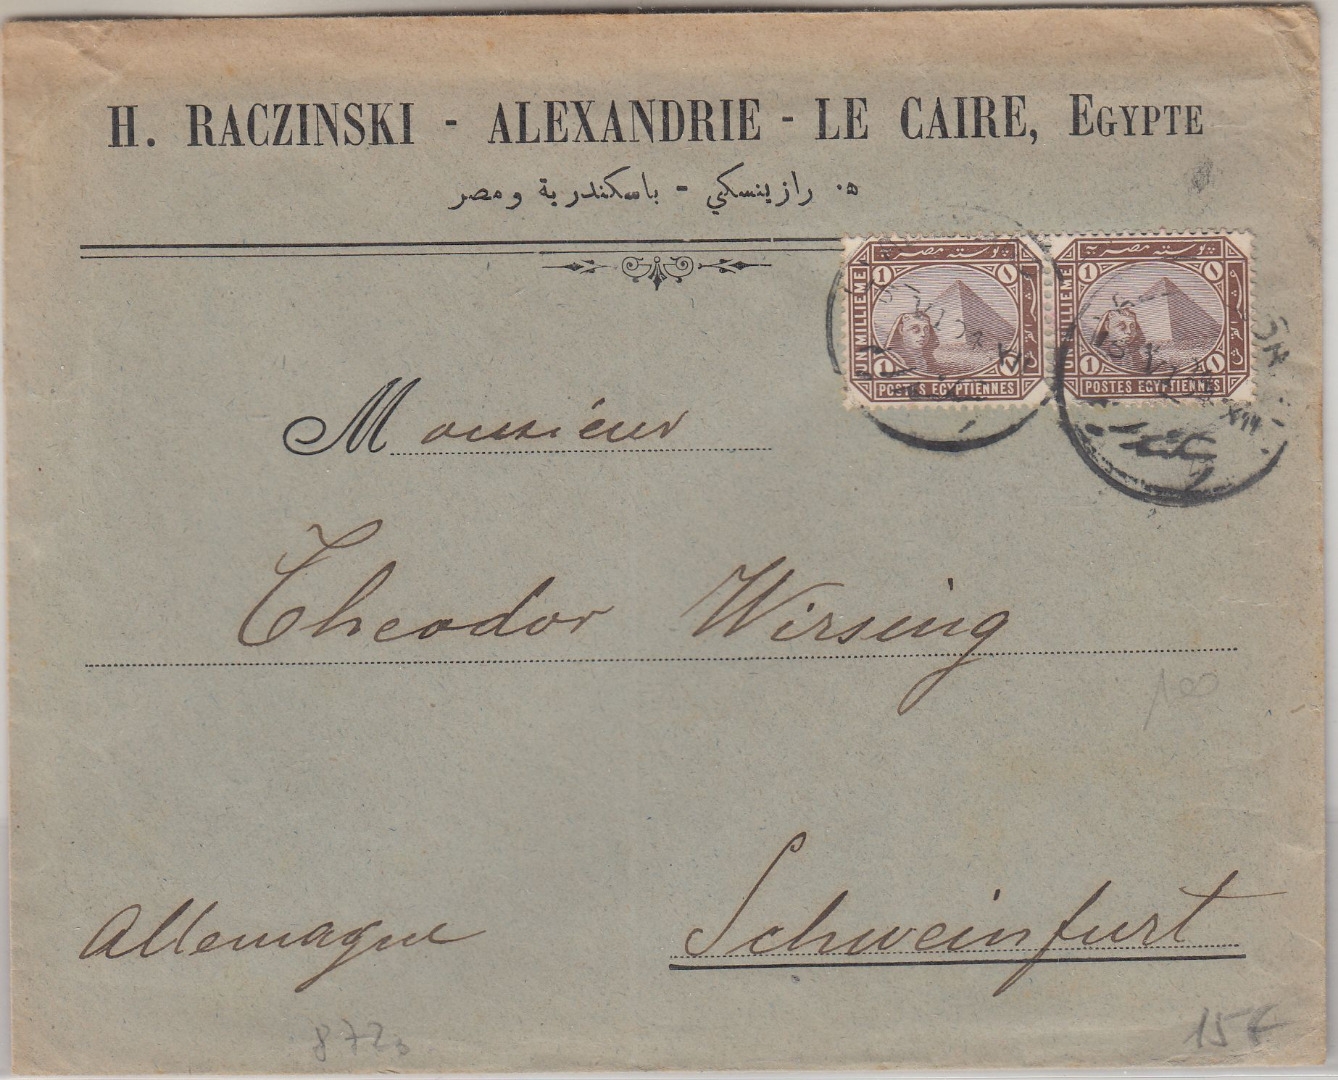 H. RACZINSKI - ALEXANDRIE - LE CAIRE, EGYPTE
ه٠ رازينسكي - باسكندرية ومصر
بوسته مصرية
1 ١
UN MILLIEME
1 ١
POSTES EGYPTIENNES
بوسته مصرية
1 ١
UN MILLIEME
1 ١
POSTES EGYPTIENNES
Monsieur
Theodor Wirsing
100
Allemagne
Schweinfurt
872
15